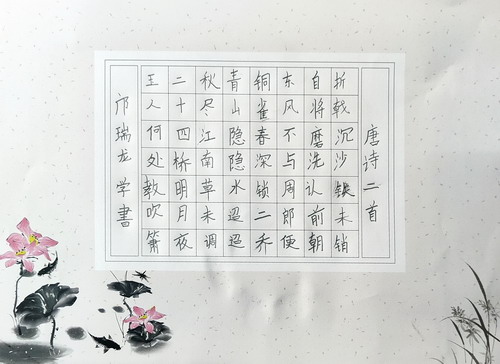 唐诗二首
折戟沉沙未销
自将磨洗认前朝
东风不与周郎便
铜雀春深锁二乔
青山隐隐水迢迢
秋尽江南草未调
二十四桥明月夜
玉人何处教吹箫
邝瑞龙 学書